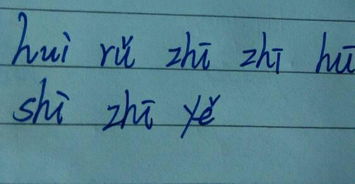 huì rǔ zhī zhī hū
shì zhī yě